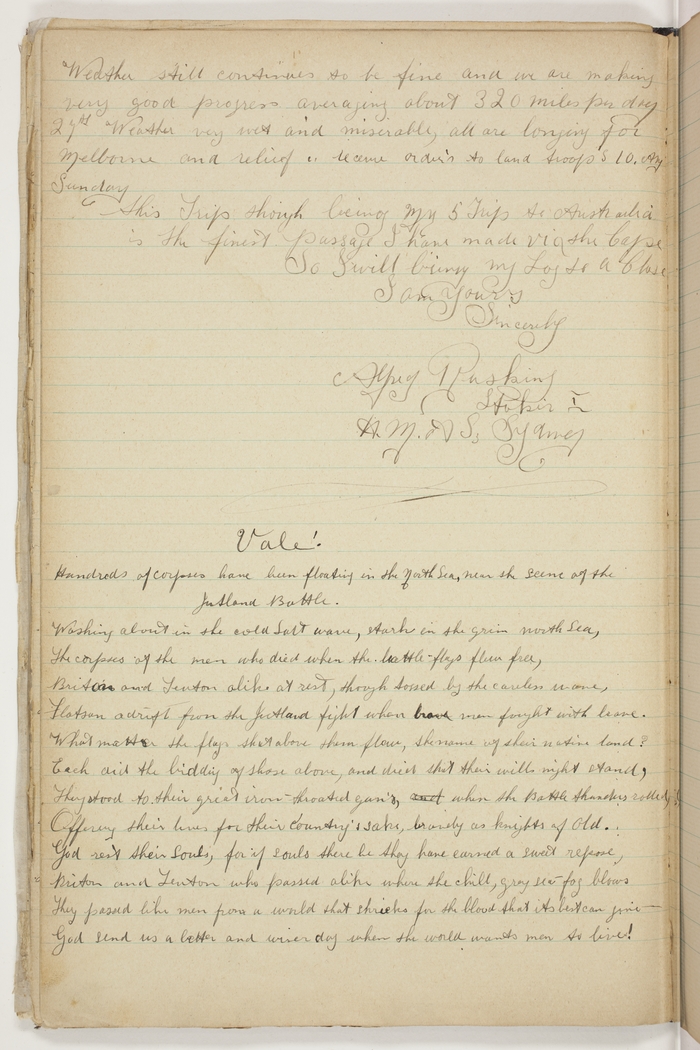 Weather still continues to be fine and we are making
very good progress averaging about 320 miles per day
27th Weather very wet and miserable, all are longing for
Melborne and relief .. receive orders to land troops 10.
Sunday
This Trip, though being my 5 Trip to Australia
is the finest passage I have made via the Cape
So I will bring my Log to a Close
I am Yours
Sincerely
Alfred Rusking
Stoker I
H.M.A.S. Sydney
Vale!
Hundreds of corpses have been floating in the North Sea, near the scene of the
Jutland Battle.
Washing about in the cold salt wave, stark in the grim north sea,
The corpses of the men who died when the battle-flags flew free,
Briton and Teuton alike at rest, though tossed by the careless wave,
Flotsan adrift from the Jutland fight when brave men fought with leave.
What matter the flags that above them flew, the name of their native land?
Each did the bidding of those above, and died that their wills might stand,
They stood to their great iron-throated guns, and when the Battle thunders rolled,
Offering their lives for their country's sake, bravely as knights of Old..
God rest their souls, for if souls there be they have earned a sweet repose,
Briton and Teuton who passed alike where the chill, gray sea-fog blows
They passed like men from a world that shrieks for the blood that its best can give—
God send us a better and wiser day when the world wants men to live!